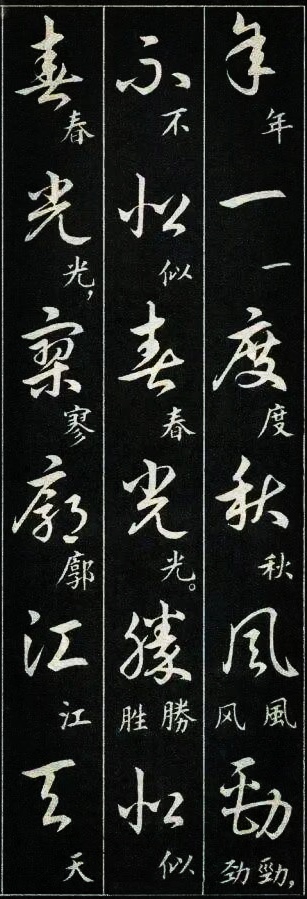 年一度秋風勁
年一度秋風风勁,劲
不似春光勝似
不似春光。勝胜似
春光寥廓江天
春光,寥廓江天